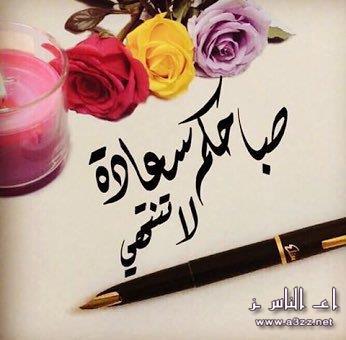 صباحكم سعادة
لا تنتهي
اعز الناس
www.a3zz.net